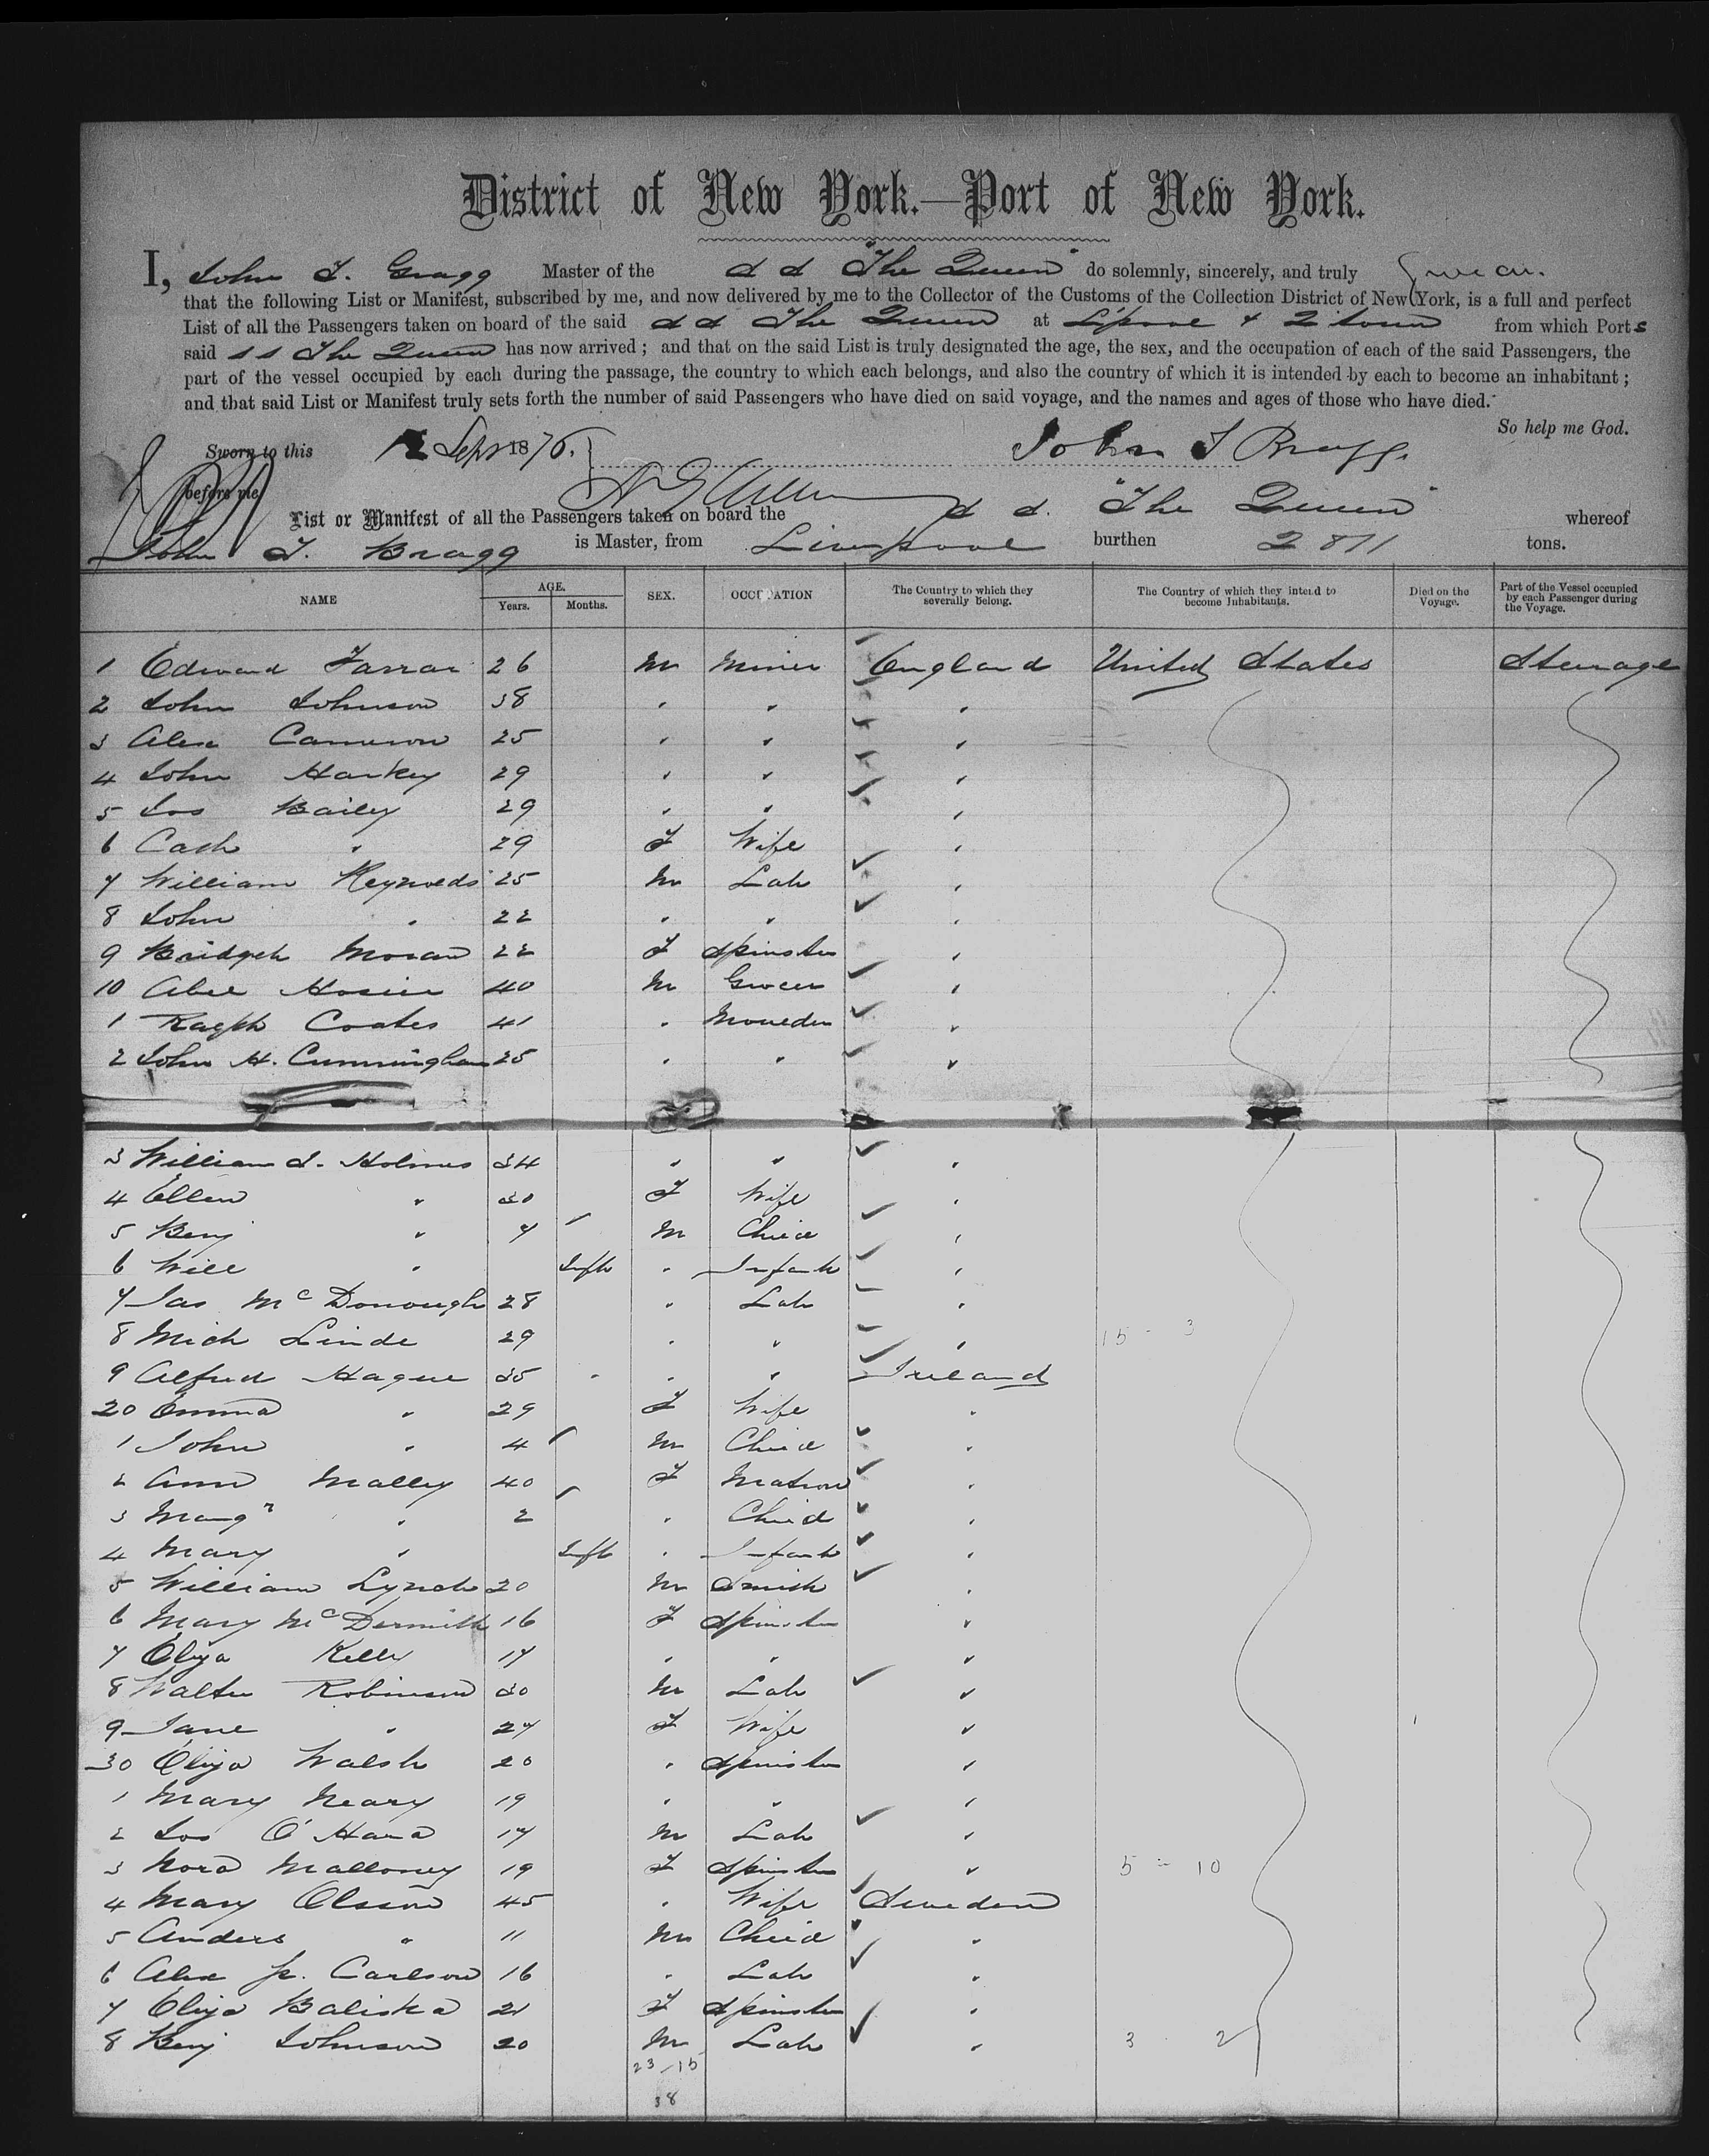 District of New York.—Port of New York.
I, John T. Bragg Master of the S S "The Queen" do solemnly, sincerely, and truly Swear
that the following List or Manifest, subscribed by me, and now delivered by me to the Collector of the Customs of the Collection District of New York, is a full and perfect
List of all the Passengers taken on board of the said S S The Queen at L'pool & Q'town from which Ports
said S S The Queen has now arrived; and that on the said List is truly designated the age, the sex, and the occupation of each of the said Passengers, the
part of the vessel occupied by each during the passage, the country to which each belongs, and also the country of which it is intended by each to become an inhabitant;
and that said List or Manifest truly sets forth the number of said Passengers who have died on said voyage, and the names and ages of those who have died.
So help me God.
Sworn to this 12 Sept 1876. John T Bragg.
before me
List or Manifest of all the Passengers taken on board the S S. "The Queen" whereof
John T. Bragg is Master, from Liverpool burthen 2811 tons.
NAME AGE. Years. Months. SEX. OCCUPATION The Country to which they severally belong. The Country of which they intend to become Inhabitants. Died on the Voyage. Part of the Vessel occupied by each Passenger during the Voyage.
1 Edward Farrar 26 M Miner England United States Steerage
2 John Johnson 38 " " "
3 Alex Cameron 25 " " "
4 John Harkey 29 " " "
5 Jos Bailey 29 " " "
6 Cath " 29 F Wife "
7 William Reynolds 25 M Lab "
8 John " 22 " " "
9 Bridget Moran 22 F Spinster "
10 Abel Hosier 40 M Grocer "
1 Ralph Coates 41 " Moulder "
2 John H. Cunningham 25 " " "
3 William J. Holmes 34 " " "
4 Ellen " 30 F Wife "
5 Benj " 7 M Child "
6 Will " Inft " Infant "
7 Jas McDonough 28 " Lab "
8 Mich Linde 29 " " " 15 - 3
9 Alfred Hague 35 " " Ireland
20 Emma " 29 F Wife "
1 John " 4 M Child "
2 Ann Malley 40 F Matron "
3 Margt " 2 " Child "
4 Mary " Inft " Infant "
5 William Lynch 20 M Smith "
6 Mary McDermitt 16 F Spinster "
7 Eliza Kelly 17 " " "
8 Walter Robinson 30 M Lab "
9 Jane " 27 F Wife "
30 Eliza Walsh 20 " Spinster "
1 Mary Neary 19 " " "
2 Jos O'Hara 17 M Lab "
3 Nora Malloney 19 F Spinster " 5 - 10
4 Mary Olsson 45 " Wife Sweden
5 Anders " 11 M Child "
6 Alex Jr. Carlson 16 " Lab "
7 Eliza Baliska 21 F Spinster "
8 Benj Johnson 20 M Lab " 3 - 2
23/15
38